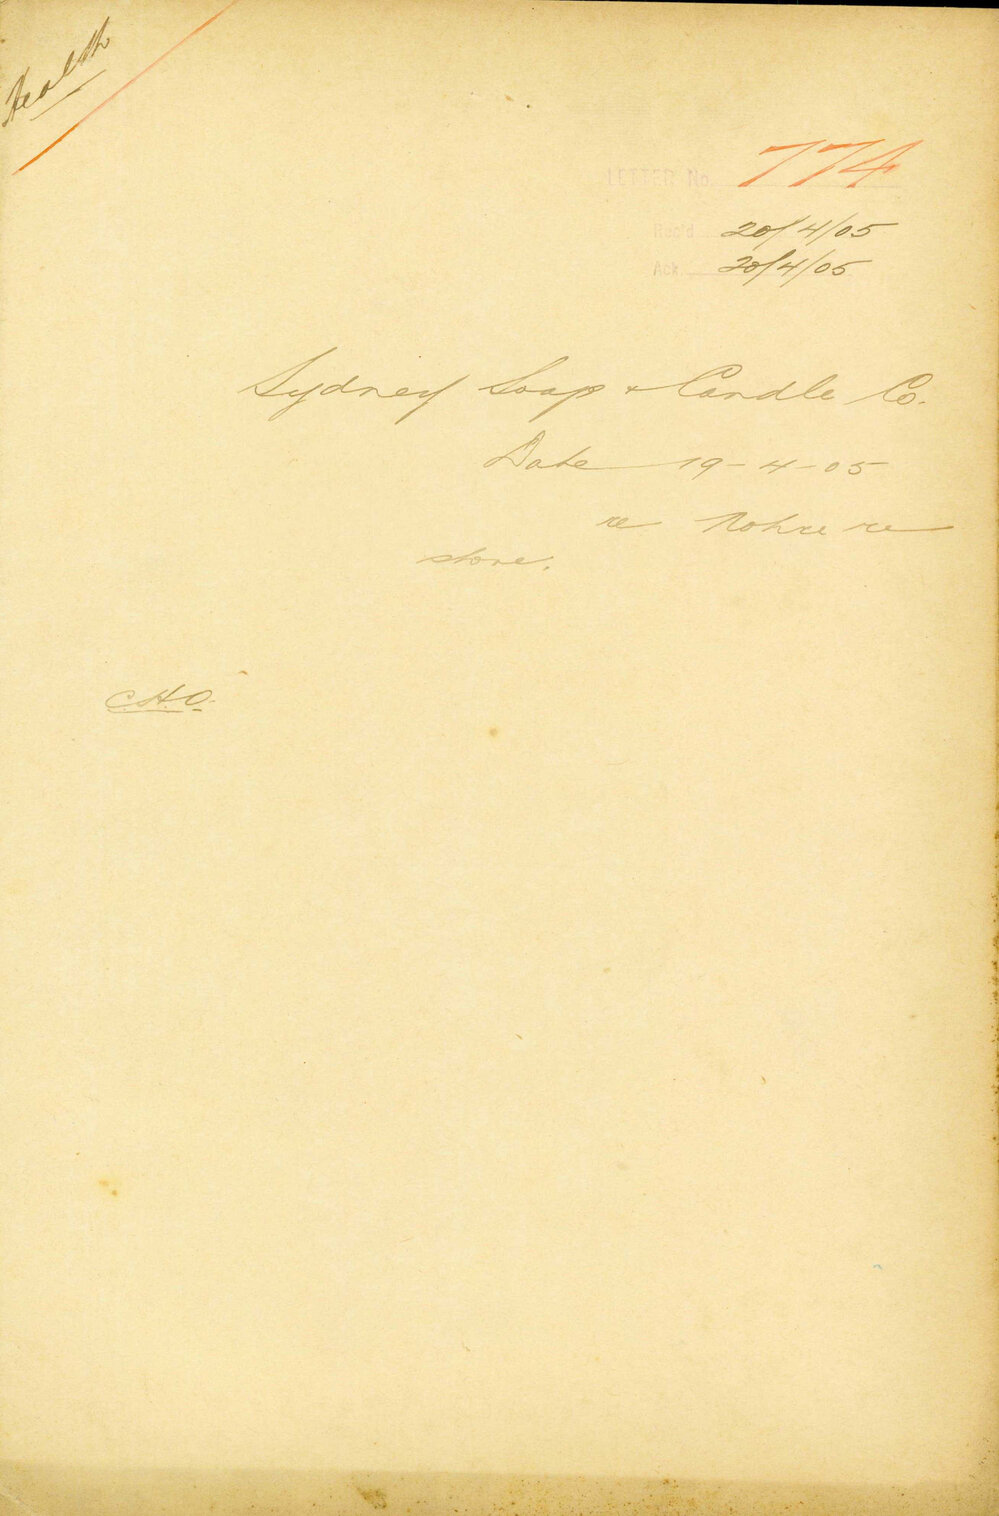 Health
LETTER No. 774
Rec'd 20/4/05
Ack. 20/4/05
Sydney Soap & Candle Co.
Date 19-4-05
re Notice re
store.
C.H.O.